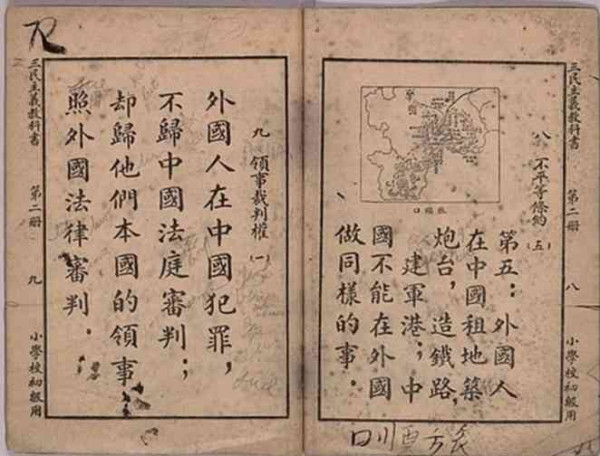 三民主義教科書 第二冊 八 小學校初級用
八 不平等條約 (五)
第五：外國人
在中國租地築
炮台，造鐵路，
建軍港；中
國不能在外國
做同樣的事．
九 領事裁判權 (一)
外國人在中國犯罪，
不歸中國法庭審判；
却歸他們本國的領事
照外國法律審判．
三民主義教科書 第二冊 九 小學校初級用